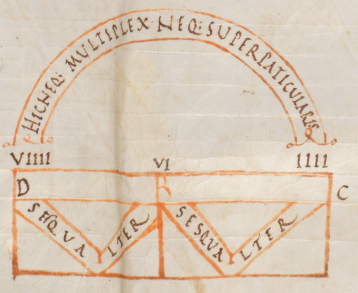 HIC NEQ: MULTIPLEX NEQ: SUPERPATICULARIS
VIIII VI IIII
D B C
SEQVALTER SESQVALTER